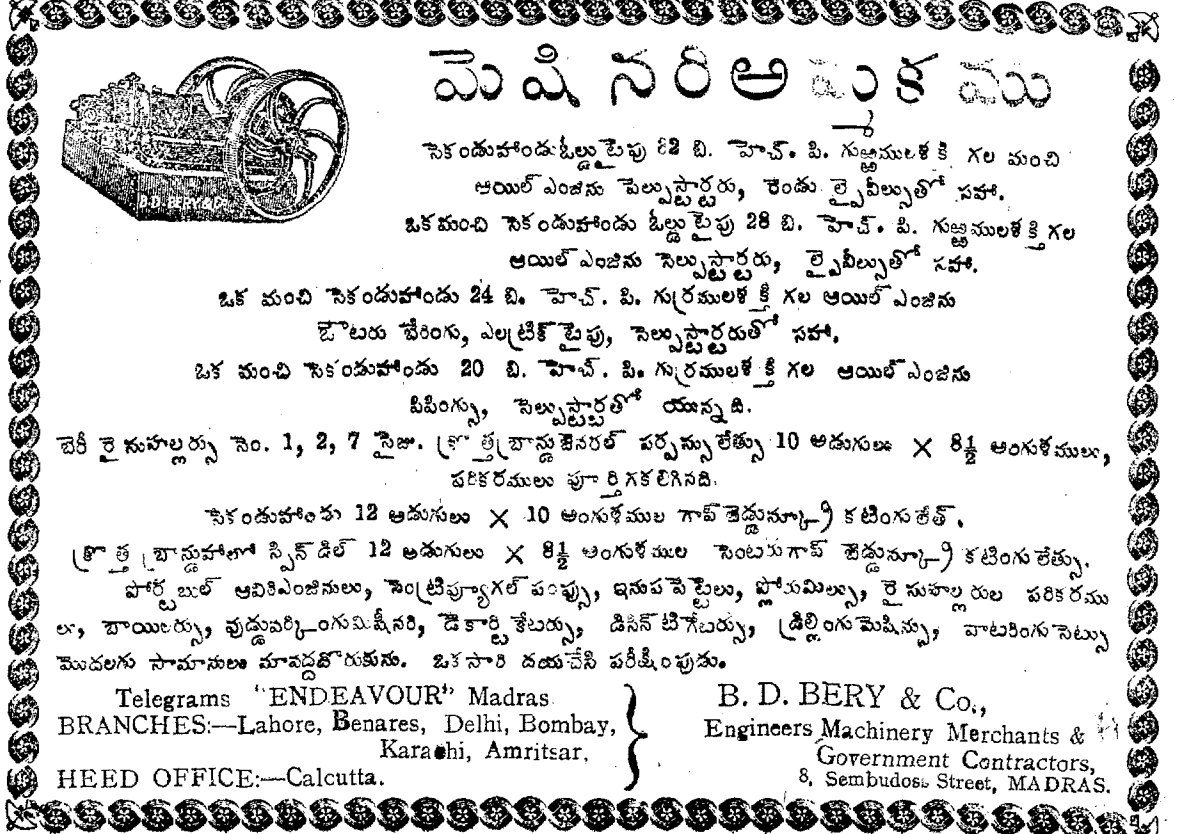 మెషినరి అమ్మకము
B. D. BERY & Co
సెకండుహాండు ఓల్డు టైపు 82 బి. హెచ్. పి. గుఱ్ఱములశక్తి గల మంచి
ఆయిల్ ఎంజిను సెల్ఫుస్టార్టరు, రెండు ఫ్లైవీల్సుతో సహా.
ఒక మంచి సెకండుహాండు ఓల్డు టైపు 28 బి. హెచ్. పి. గుఱ్ఱములశక్తి గల
ఆయిల్ ఎంజిను సెల్ఫుస్టార్టరు, ఫ్లైవీల్సుతో సహా.
ఒక మంచి సెకండుహాండు 24 బి. హెచ్. పి. గుర్రములశక్తి గల ఆయిల్ ఎంజిను
ఔటరు బేరింగు, ఎలట్రిక్ టైపు, సెల్ఫుస్టార్టరుతో సహా.
ఒక మంచి సెకండుహాండు 20 బి. హెచ్. పి. గుర్రములశక్తి గల ఆయిల్ ఎంజిను
పిపింగ్సు, సెల్ఫుస్టార్టతో యున్నది.
బెరీ రైసుహల్లర్సు నెం. 1, 2, 7 సైజు. క్రొత్త బ్రాండు జెనరల్ పర్పస్సు లేత్సు 10 అడుగులు × 8½ అంగుళములు,
పరికరములు పూర్తిగ కలిగినది.
సెకండుహాండు 12 అడుగులు × 10 అంగుళముల గాప్ బెడ్డు స్క్రూ కటింగు లేత్.
క్రొత్త బ్రాండు హాలో స్పిన్‌డిల్ 12 అడుగులు × 8½ అంగుళముల సెంటరు గాప్ బెడ్డు స్క్రూ కటింగు లేత్సు.
పోర్టబుల్ ఆవిరి ఎంజినులు, సెంట్రిఫ్యూగల్ పంప్సు, ఇనుప పెట్టెలు, ఫ్లోరుమిల్సు, రైసుహల్లరుల పరికరము
లు, బాయిలర్సు, వుడ్డువర్కింగు మిషీనరి, డెకార్టికేటర్సు, డిసిన్‌టిగ్రేటర్సు, డ్రిల్లింగు మెషిన్సు, వాటరింగు సెట్సు
మొదలగు సామానులు మావద్ద దొరుకును. ఒకసారి దయచేసి పరీక్షింపుడు.
Telegrams "ENDEAVOUR" Madras
BRANCHES:—Lahore, Benares, Delhi, Bombay,
Karachi, Amritsar,
HEED OFFICE:—Calcutta.
B. D. BERY & Co.,
Engineers Machinery Merchants &
Government Contractors,
8, Sembudoss Street, MADRAS.